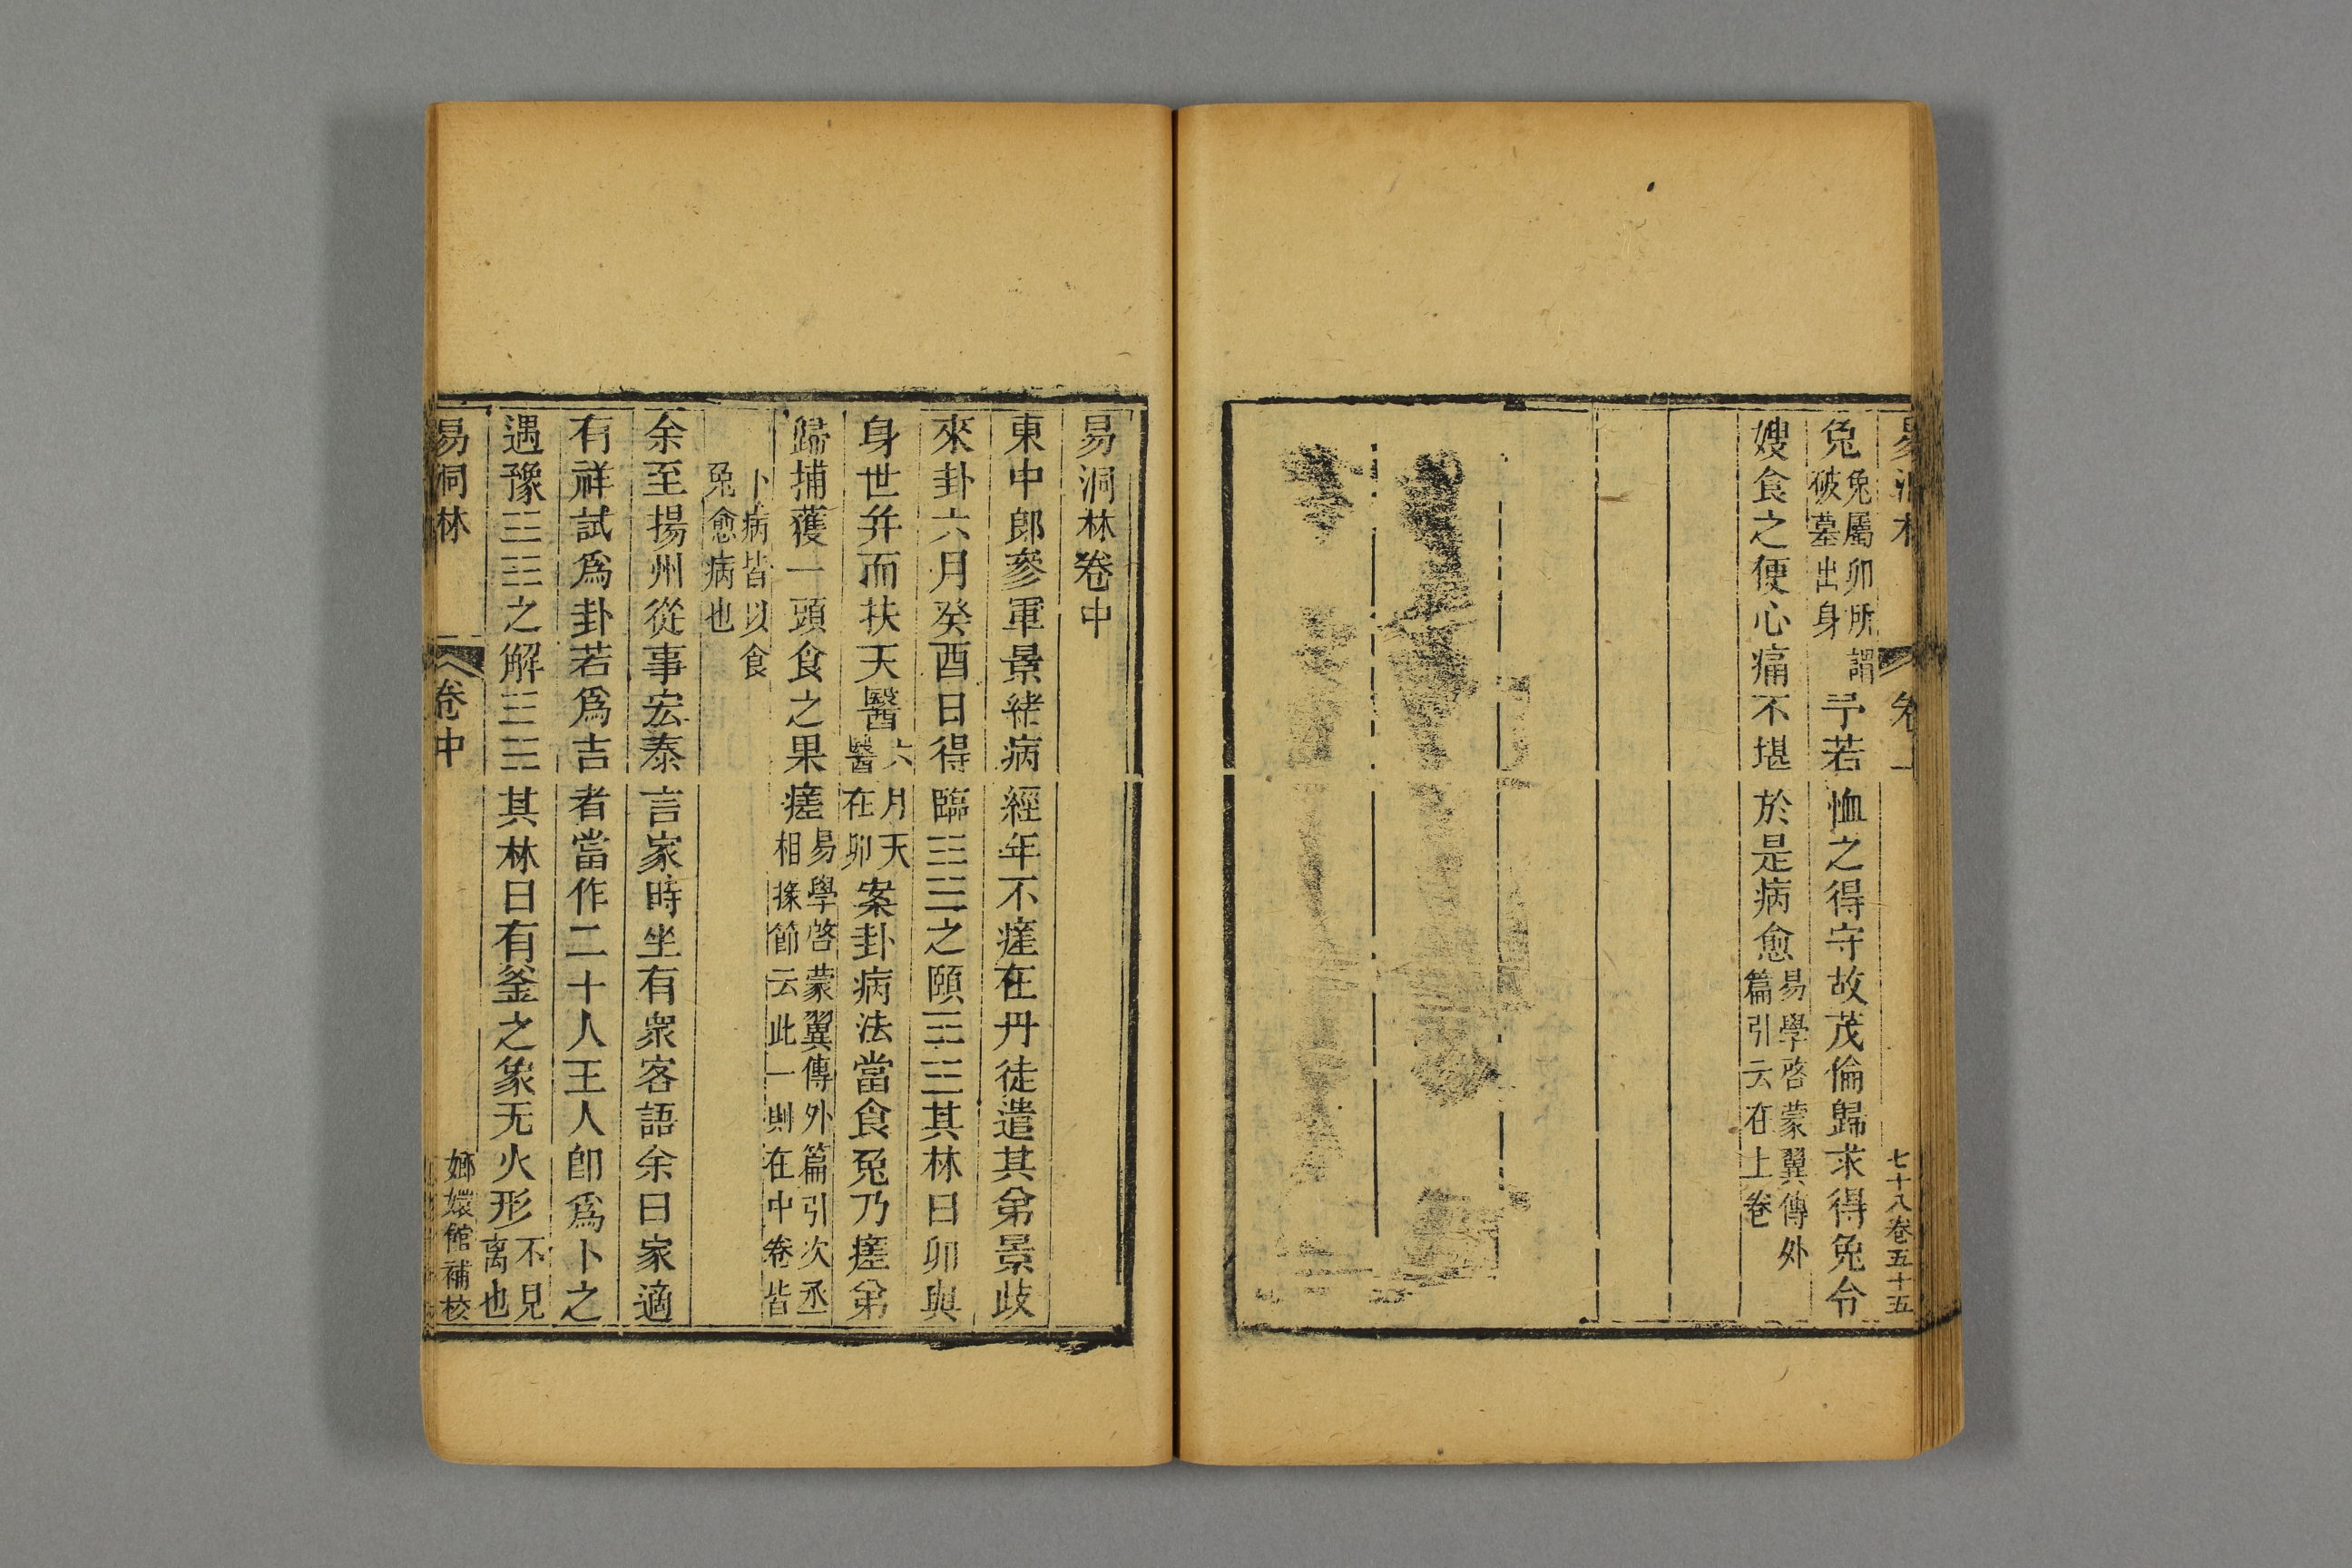 七十八卷五十五
兔兔屬卯所謂破墓出身予若恤之得守故茂倫歸求得兔令
嫂食之便心痛不堪於是病愈易學啓蒙翼傳外篇引云在上卷
易洞林卷中
東中郎參軍景緒病經年不瘥在丹徒遣其弟景歧
來卦六月癸酉日得臨☷☱之頤☶☳其林曰卯與
身世幷而扶天醫六月天醫在卯案卦病法當食兔乃瘥弟
歸捕獲一頭食之果瘥易學啓蒙翼傳外篇引次丞相掾節云此一則在中卷皆
卜病皆以食兔愈病也
余至揚州從事宏泰言家時坐有衆客語余曰家適
有祥試爲卦若爲吉者當作二十人王人卽爲卜之
遇豫☳☷之解☳☵其林曰有釜之象无火形不見离也
易洞林 卷中 嫏嬛館補校